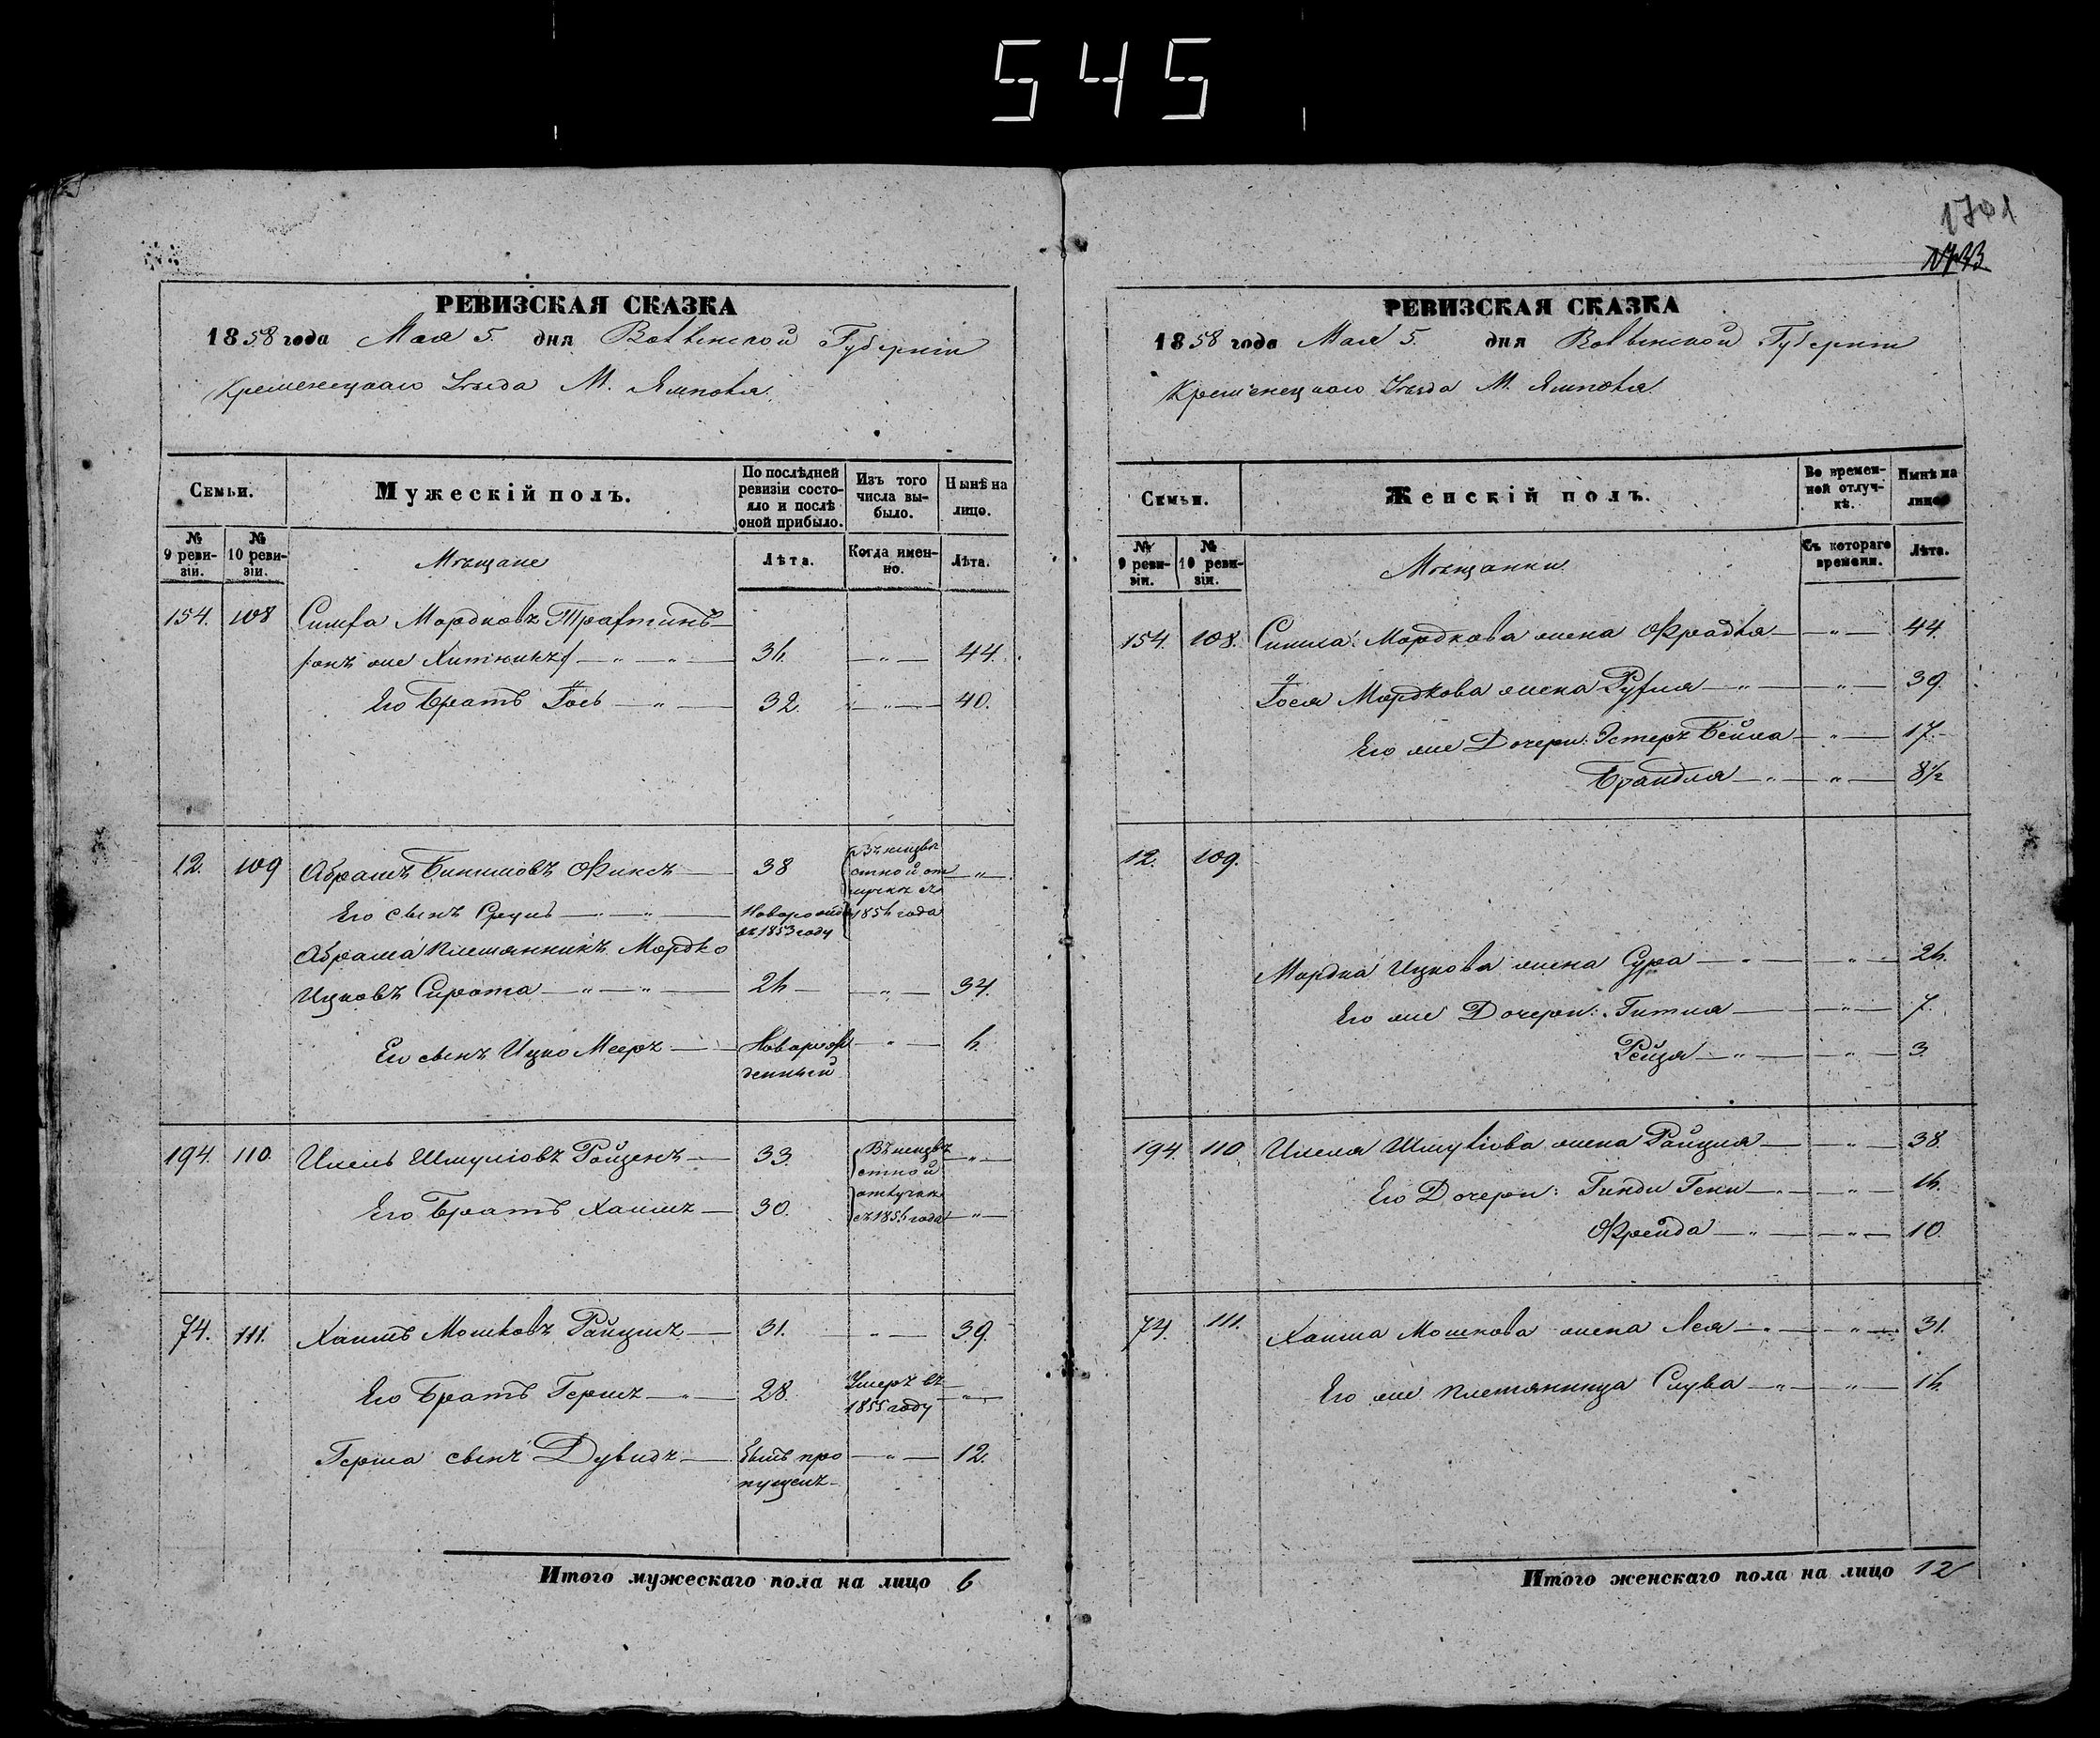 545
1701
1733
РЕВИЗСКАЯ СКАЗКА
1858 года Мая 5. дня Волынской Губерніи
Кременецкаго Уѣзда М. Ямполя.
Семьи.
Мужескій полъ.
По послѣдней ревизіи состояло и послѣ оной прибыло.
Изъ того числа выбыло.
Нынѣ на лицо.
№ 9 ревизіи.
№ 10 ревизіи.
Мѣщане
Лѣта.
Когда именно.
Лѣта.
154. 108 Симха Мордковъ
онъ же — " — " — 3h. — " — 44.
Его Братъ Іось — " — 32. — " — 40.
12. 109 Абрамъ Финсъ — 38 Въ неизвѣстной отлучкѣ съ 1854 года — " —
Его сынъ Сруль — " — Новорожд. въ 1853 году
Абрама племянникъ Мордко
Ицковъ Сирота — " — " — 2h — " — 34.
Его сынъ Ицко Мееръ — Новорожденный — " — h.
194. 110. Шмуліовъ Райценъ — 33. Въ неизвѣстной отлучкѣ съ 185h года — " —
Его Братъ Хаимъ — 30. — " —
74. 111. Хаимъ Мошковъ — 31. — " — 39.
Его Братъ Гершъ — " — 28. Умеръ въ 1855 году — " —
Герша сынъ Дувидъ — былъ пропущенъ — " — 12.
Итого мужескаго пола на лицо 6
РЕВИЗСКАЯ СКАЗКА
1858 года Мая 5. дня Волынской Губерніи
Кременецкаго Уѣзда М. Ямполя.
Семьи.
Женскій полъ.
Во временной отлучкѣ.
Нынѣ на лицо
№ 9 ревизіи.
№ 10 ревизіи.
Мѣщанки
Съ котораго времени.
Лѣта.
154. 108. Мордкова жена Фрадля — " — 44.
Іося Мордкова жена Рухля — " — " — 39.
Его же Дочери: Эстеръ Бейла — " — 17.
Брандля — " — " — 8½
12. 109.
Мордка Ицкова жена Сура — " — " — 2h.
Его же Дочери: Гитля — " — 7.
Рейзя — " — " — 3.
194. 110. Шмуліова жена — " — 38.
Его Дочери: — " — " — 1h.
Фрейда — " — " — 10.
74. 111. Хаима Мошкова жена Лея — " — " — 31.
Его же племянница Слува — " — " — 1h.
Итого женскаго пола на лицо 12